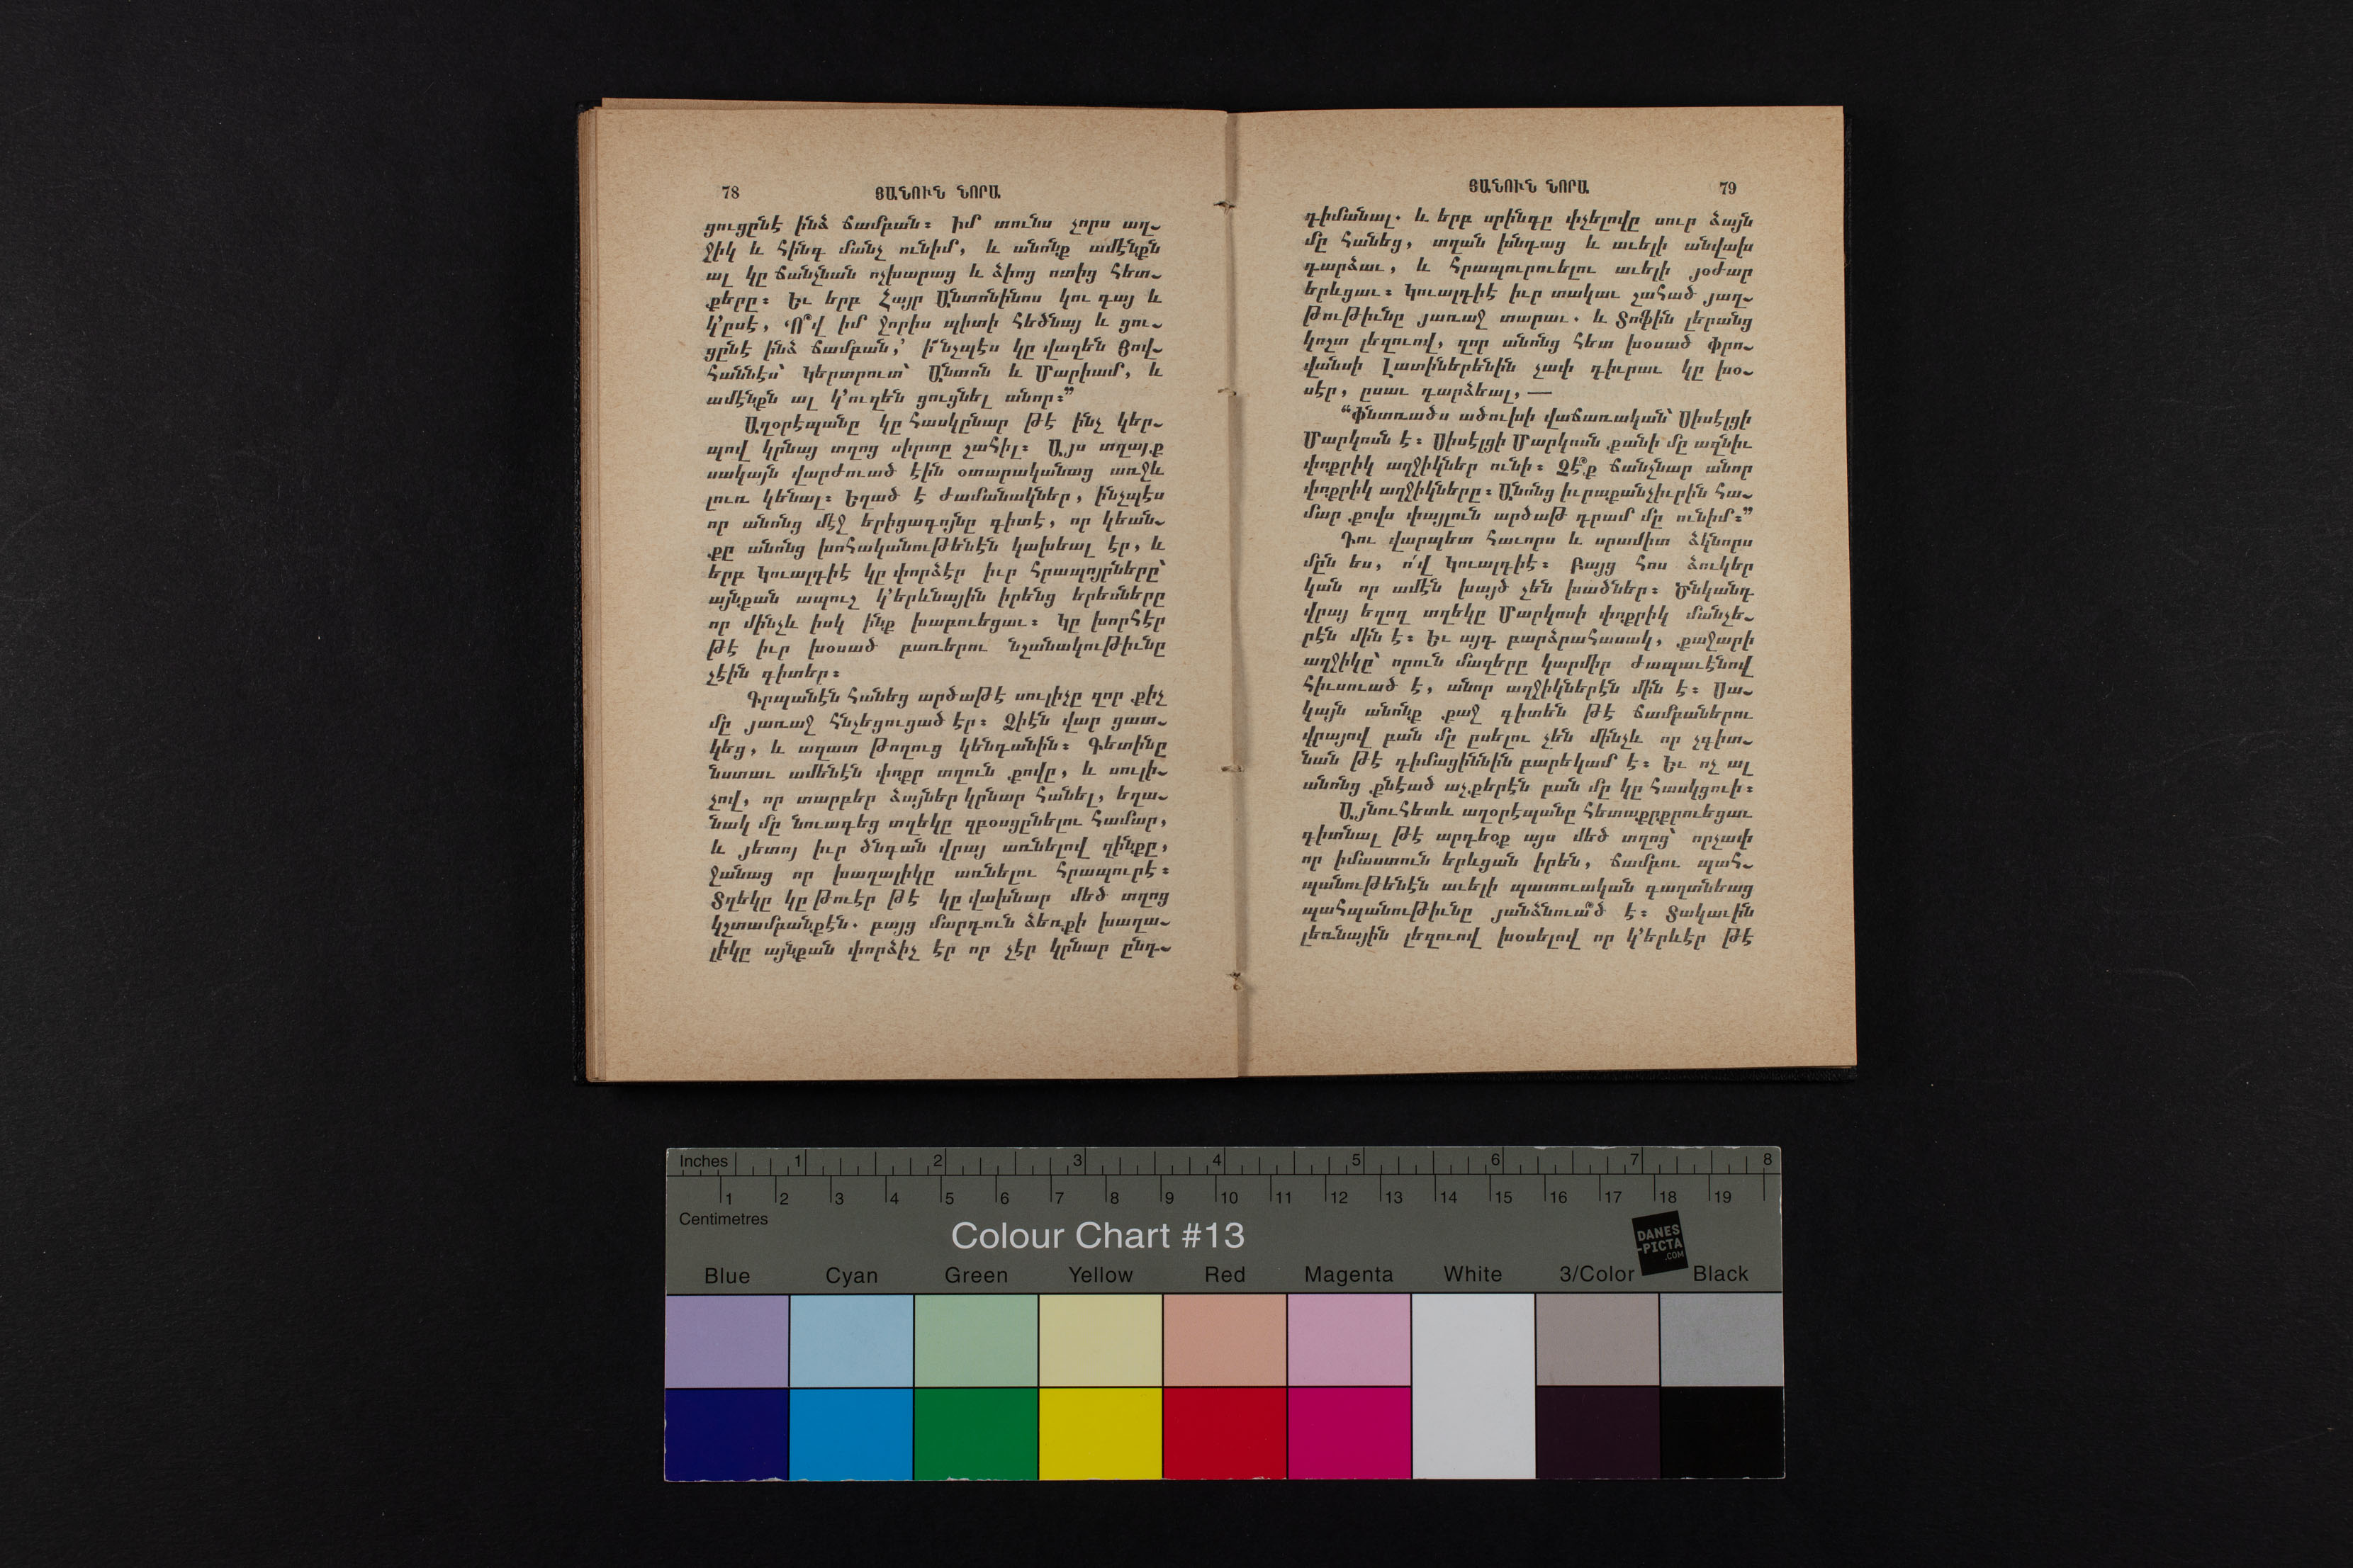 78 ՅԱՆՈՒՆ ՆՈՐԱ
ցուցընէ ինձ ճամբան։ Իմ տունս չորս աղ-
ջիկ և հինգ մանչ ունիմ, և անոնք ամէնքն
ալ կը ճանչնան ոչխարաց և ձիոց ոտից հետ-
քերը։ Եւ երբ Հայր Անտոնինոս կու գայ և
կ՚ըսէ, ‘Ո՞վ իմ ջորիս պիտի հեծնայ և ցու-
ցընէ ինձ ճամբան,’ ի՜նչպէս կը վազեն Յով-
հաննէս՝ Կերտրուտ՝ Անտոն և Մարիամ, և
ամէնքն ալ կ՚ուզեն ցուցնել անոր։”
Աղօրէպանը կը հասկընար թէ ինչ կեր-
պով կրնայ տղոց սիրտը շահիլ։ Այս տղայք
սակայն վարժուած էին օտարականաց առջև
լուռ կենալ։ Եղած է ժամանակներ, ինչպէս
որ անոնց մէջ երիցագոյնը գիտէ, որ կեան-
քը անոնց խոհականութենէն կախեալ էր, և
երբ Կուալդիէ կը փորձէր իւր հրապոյրները՝
այնքան ապուշ կ՚երևնային իրենց երեսները
որ մինչև իսկ ինք խաբուեցաւ։ Կը խորհէր
թէ իւր խօսած բառերու նշանակութիւնը
չէին գիտեր։
Գրպանէն հանեց արծաթէ սուլիչը զոր քիչ
մը յառաջ հնչեցուցած էր։ Ձիէն վար ցատ-
կեց, և ազատ թողուց կենդանին։ Գետինը
նստաւ ամենէն փոքր տղուն քովը, և սուլի-
չով, որ տարբեր ձայներ կրնար հանել, եղա-
նակ մը նուագեց տղեկը զբօսցընելու համար,
և յետոյ իւր ծնգան վրայ առնելով զինքը,
ջանաց որ խաղալիկը առնելու հրապուրէ։
Տղեկը կը թուէր թէ կը վախնար մեծ տղոց
կշտամբանքէն. բայց մարդուն ձեռքի խաղա-
լիկը այնքան փորձիչ էր որ չէր կրնար ընդ-
ՅԱՆՈՒՆ ՆՈՐԱ 79
դիմանալ. և երբ սրինգը փչելովը սուր ձայն
մը հանեց, տղան խնդաց և աւելի անվախ
դարձաւ, և հրապուրուելու աւելի յօժար
երևցաւ։ Կուալդիէ իւր տակաւ շահած յաղ-
թութիւնը յառաջ տարաւ. և Տոֆին լերանց
կոշտ լեզուով, զոր անոնց հետ խօսած Փրո-
վանսի Լատիներենին չափ դիւրաւ կը խօ-
սէր, ըսաւ դարձեալ, —
“Փնտռածս ածուխի վաճառական՝ Սիսէլցի
Մարկոսն է։ Սիսէլցի Մարկոսն քանի մը աղնիւ
փոքրիկ աղջիկներ ունի։ Չէ՞ք ճանչնար անոր
փոքրիկ աղջիկները։ Անոնց իւրաքանչիւրին հա-
մար քովս փայլուն արծաթ դրամ մը ունիմ։”
Դու վարպետ հաւորս և սրամիտ ձկնորս
մըն ես, ո՛վ Կուալդիէ։ Բայց հոս ձուկեր
կան որ ամէն խայծ չեն խածներ։ Ծնկանդ
վրայ եղող տղեկը Մարկոսի փոքրիկ մանչե-
րէն մին է։ Եւ այդ բարձրահասակ, քաջարի
աղջիկը՝ որուն մազերը կարմիր ժապաւէնով
հիւսուած է, անոր աղջիկներէն մին է։ Սա-
կայն անոնք քաջ գիտեն թէ ճամբաներու
վրայով բան մը ըսելու չեն մինչև որ չգիտ-
նան թէ դիմացիննին բարեկամ է։ Եւ ոչ ալ
անոնց քնէած աչքերէն բան մը կը հասկցուի։
Այնուհետև աղօրէպանը հետաքրքրուեցաւ
գիտնալ թէ արդեօք այս մեծ տղոց՝ որչափ
որ իմաստուն երևցան իրեն, ճամբու պահ-
պանութենէն աւելի պատուական գաղտնեաց
պահպանութիւնը յանձնուա՞ծ է։ Տակաւին
լեռնային լեզուով խօսելով որ կ՚երևէր թէ
Inches 1 2 3 4 5 6 7 8
1 2 3 4 5 6 7 8 9 10 11 12 13 14 15 16 17 18 19
Centimetres
Colour Chart #13
DANES
-PICTA
.COM
Blue Cyan Green Yellow Red Magenta White 3/Color Black